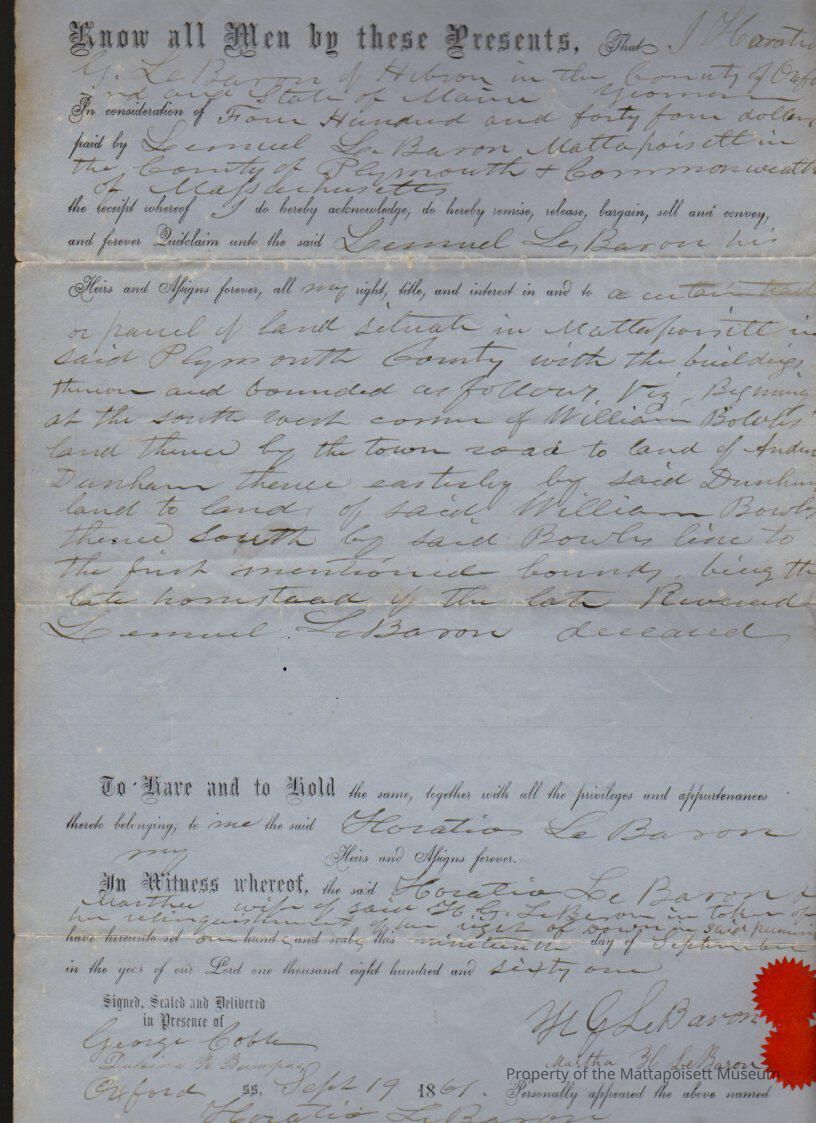 Know all Men by these Presents, That I Horatio
G. LeBaron of Hebron in the County of Oxfo
and State of Maine Yeoman
In consideration of Four Hundred and forty four dollars
paid by Lemuel LeBaron Mattapoisett in
the County of Plymouth & Commonwealth
of Massachusetts
the receipt whereof I do hereby acknowledge, do hereby remise, release, bargain, sell and convey,
and forever Quitclaim unto the said Lemuel LeBaron his
Heirs and Assigns forever, all my right, title, and interest in and to a certain tract
or parcel of land situate in Mattapoisett in
said Plymouth County with the buildings
thereon and bounded as follows Viz. Begining
at the south west corner of William Bowles
land thence by the town road to land of Andr
Dunham thence easterly by said Dunham
land to land of said William Bowles
thence South by said Bowls line to
the first mentioned bounds, being th
late homestead of the late Reverend
Lemuel LeBaron deceased
To Have and to Hold the same, together with all the privileges and appurtenances
thereto belonging, to me the said Horatio LeBaron
my Heirs and Assigns forever.
In Witness whereof, the said Horatio LeBaron
Martha wife of said H. G. LeBaron in token of
her relinquishment of her right of dower in said
have hereunto set our hand and seals, this nineteenth day of September
in the year of our Lord one thousand eight hundred and sixty one
Signed, Sealed and Delivered
in Presence of
George Cobb
H G LeBaron
Martha H LeBaron
Oxford ss. Sept 19 1861. Personally appeared the above named
Horatio LeBaron
Property of the Mattapoisett Museum